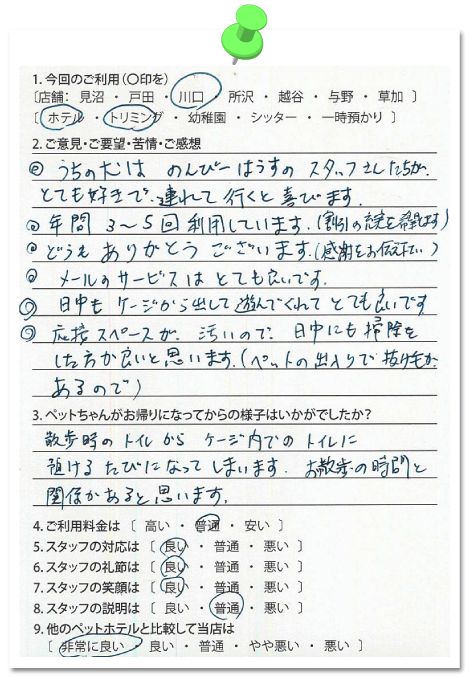 1. 今回のご利用(〇印を)
〔店舗： 見沼 ・ 戸田 ・ 川口 ・ 所沢 ・ 越谷 ・ 与野 ・ 草加 〕
〔 ホテル ・ トリミング ・ 幼稚園 ・ シッター ・ 一時預かり 〕
2. ご意見・ご要望・苦情・ご感想
◎ うちの犬は のんびーはうすの スタッフさんたちが、
とても好きで、連れて 行くと 喜びます。
◎ 年間 3〜5回 利用しています。(割引の 設定を希望します)
◎ どうも ありがとう ございます。(感謝をお伝えしたい)
◎ メールのサービスは とても良いです。
◎ 日中も ケージから出して 遊んでくれて とても良いです
◎ 応接スペースが、汚いので、日中にも 掃除を
した方が良いと思います。(ペットの出入りで 抜け毛が
あるので)
3. ペットちゃんがお帰りになってからの様子はいかがでしたか?
散歩時の トイレ から ケージ内での トイレに
預ける たびに なって しまいます. お散歩の時間と
関係があると思います。
4. ご利用料金は 〔 高い ・ 普通 ・ 安い 〕
5. スタッフの対応は 〔 良い ・ 普通 ・ 悪い 〕
6. スタッフの礼節は 〔 良い ・ 普通 ・ 悪い 〕
7. スタッフの笑顔は 〔 良い ・ 普通 ・ 悪い 〕
8. スタッフの説明は 〔 良い ・ 普通 ・ 悪い 〕
9. 他のペットホテルと比較して当店は
〔 非常に良い ・ 良い ・ 普通 ・ やや悪い ・ 悪い 〕